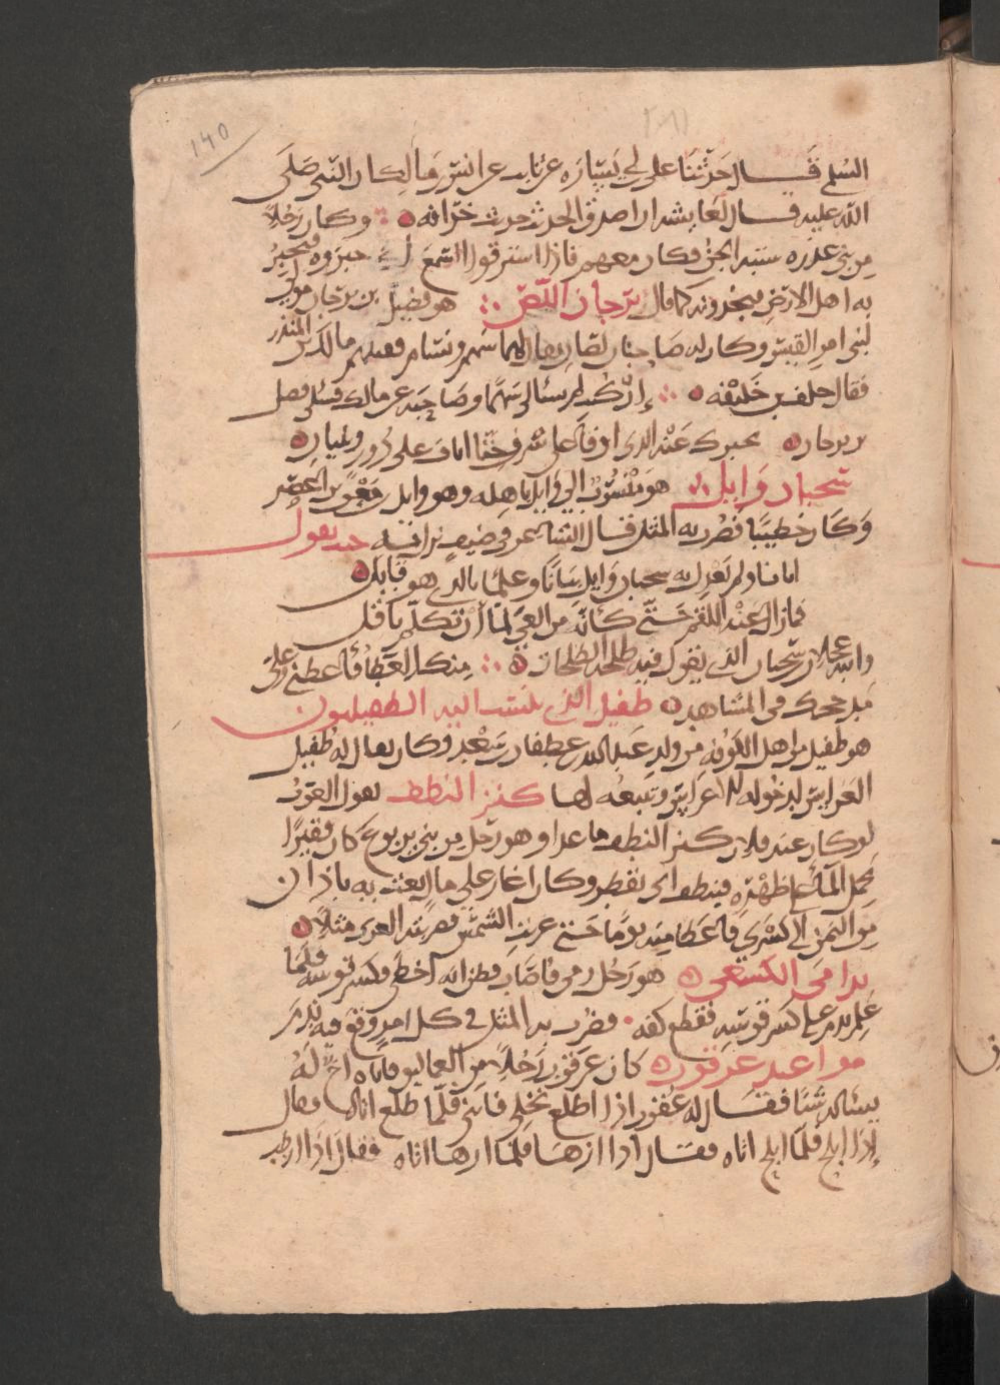 140
السلمي قال حدثنا علي بن ابي ساره عن ثابت عن انس بن مالك ان النبي صلى
الله عليه قال لعايشه ان اصدق الحديث حديث خرافه وكان رجلا
من بني عذره سبته الجن وكان معهم فاذا استرقوا السمع خبروه فيخبر
به اهل الارض فيجدونه كما قال برجان اللص هو فضيل بن برجان مولى
لبني امرئ القيس وكان له صاحبان لصان يقال لهما سهم وبسام فقتلهم مالك بن المنذر
فقال خلف بن خليفه ان كنت لم تسالي سهما وصاحبه عن مالك فسلي فضل
بن برجان يخبرك عنه الذي اوفى على شرف حتى اناف على دور وبنيان
سحبان وايل هو منسوب الى وايل باهله وهو وايل بن معن بن اعصر
وكان خطيبا فضرب به المثل قال الشاعر في ضيف نزل به حيث يقول
اتانا ولم يعدله سحبان وايل بيانا وعلما بالذي هو قايل
فما زال عنه اللقم حتى كانه من العي لما ان تكلم باقل
وابنه عجلان بن سحبان الذي يقول فيه طلحة الطلحات منك العطا فاعطني وعلي
مدحك في المشاهد طفيل الذي ينتسب اليه الطفيليون
هو طفيل من اهل الكوفه من ولد عبد الله بن غطفان بن سعد وكان يقال له طفيل
العرايس لدخوله الاعراس وتتبعه لها كنز النطف يقول العرب
لو كان عند فلان كنز النطف ما عدا وهو رجل من بني يربوع كان فقيرا
يحمل الماء على ظهره فينطف اي يقطر وكان اغار على مال بعث به باذان
من اليمن الى كسرى فاعطا منه يوما حتى غربت الشمس فضربته العرب مثلا
ندامى الكسعي هو رجل رمى فاصاب وظن انه اخطى فكسر قوسه فلما
علم ندم على كسر قوسه فقطع كفه فضرب به المثل في كل امر وقع فيه ندم
مواعيد عرقوب كان عرقوب رجلا من العماليق فاتاه اخ له
يساله شيا فقال له عرقوب اذا اطلع نخلي فايتني فلما طلع اتاه فقال
اذا ابلح فلما ابلح اتاه فقال اذا ازهى فلما ازهى اتاه فقال اذا ارطب